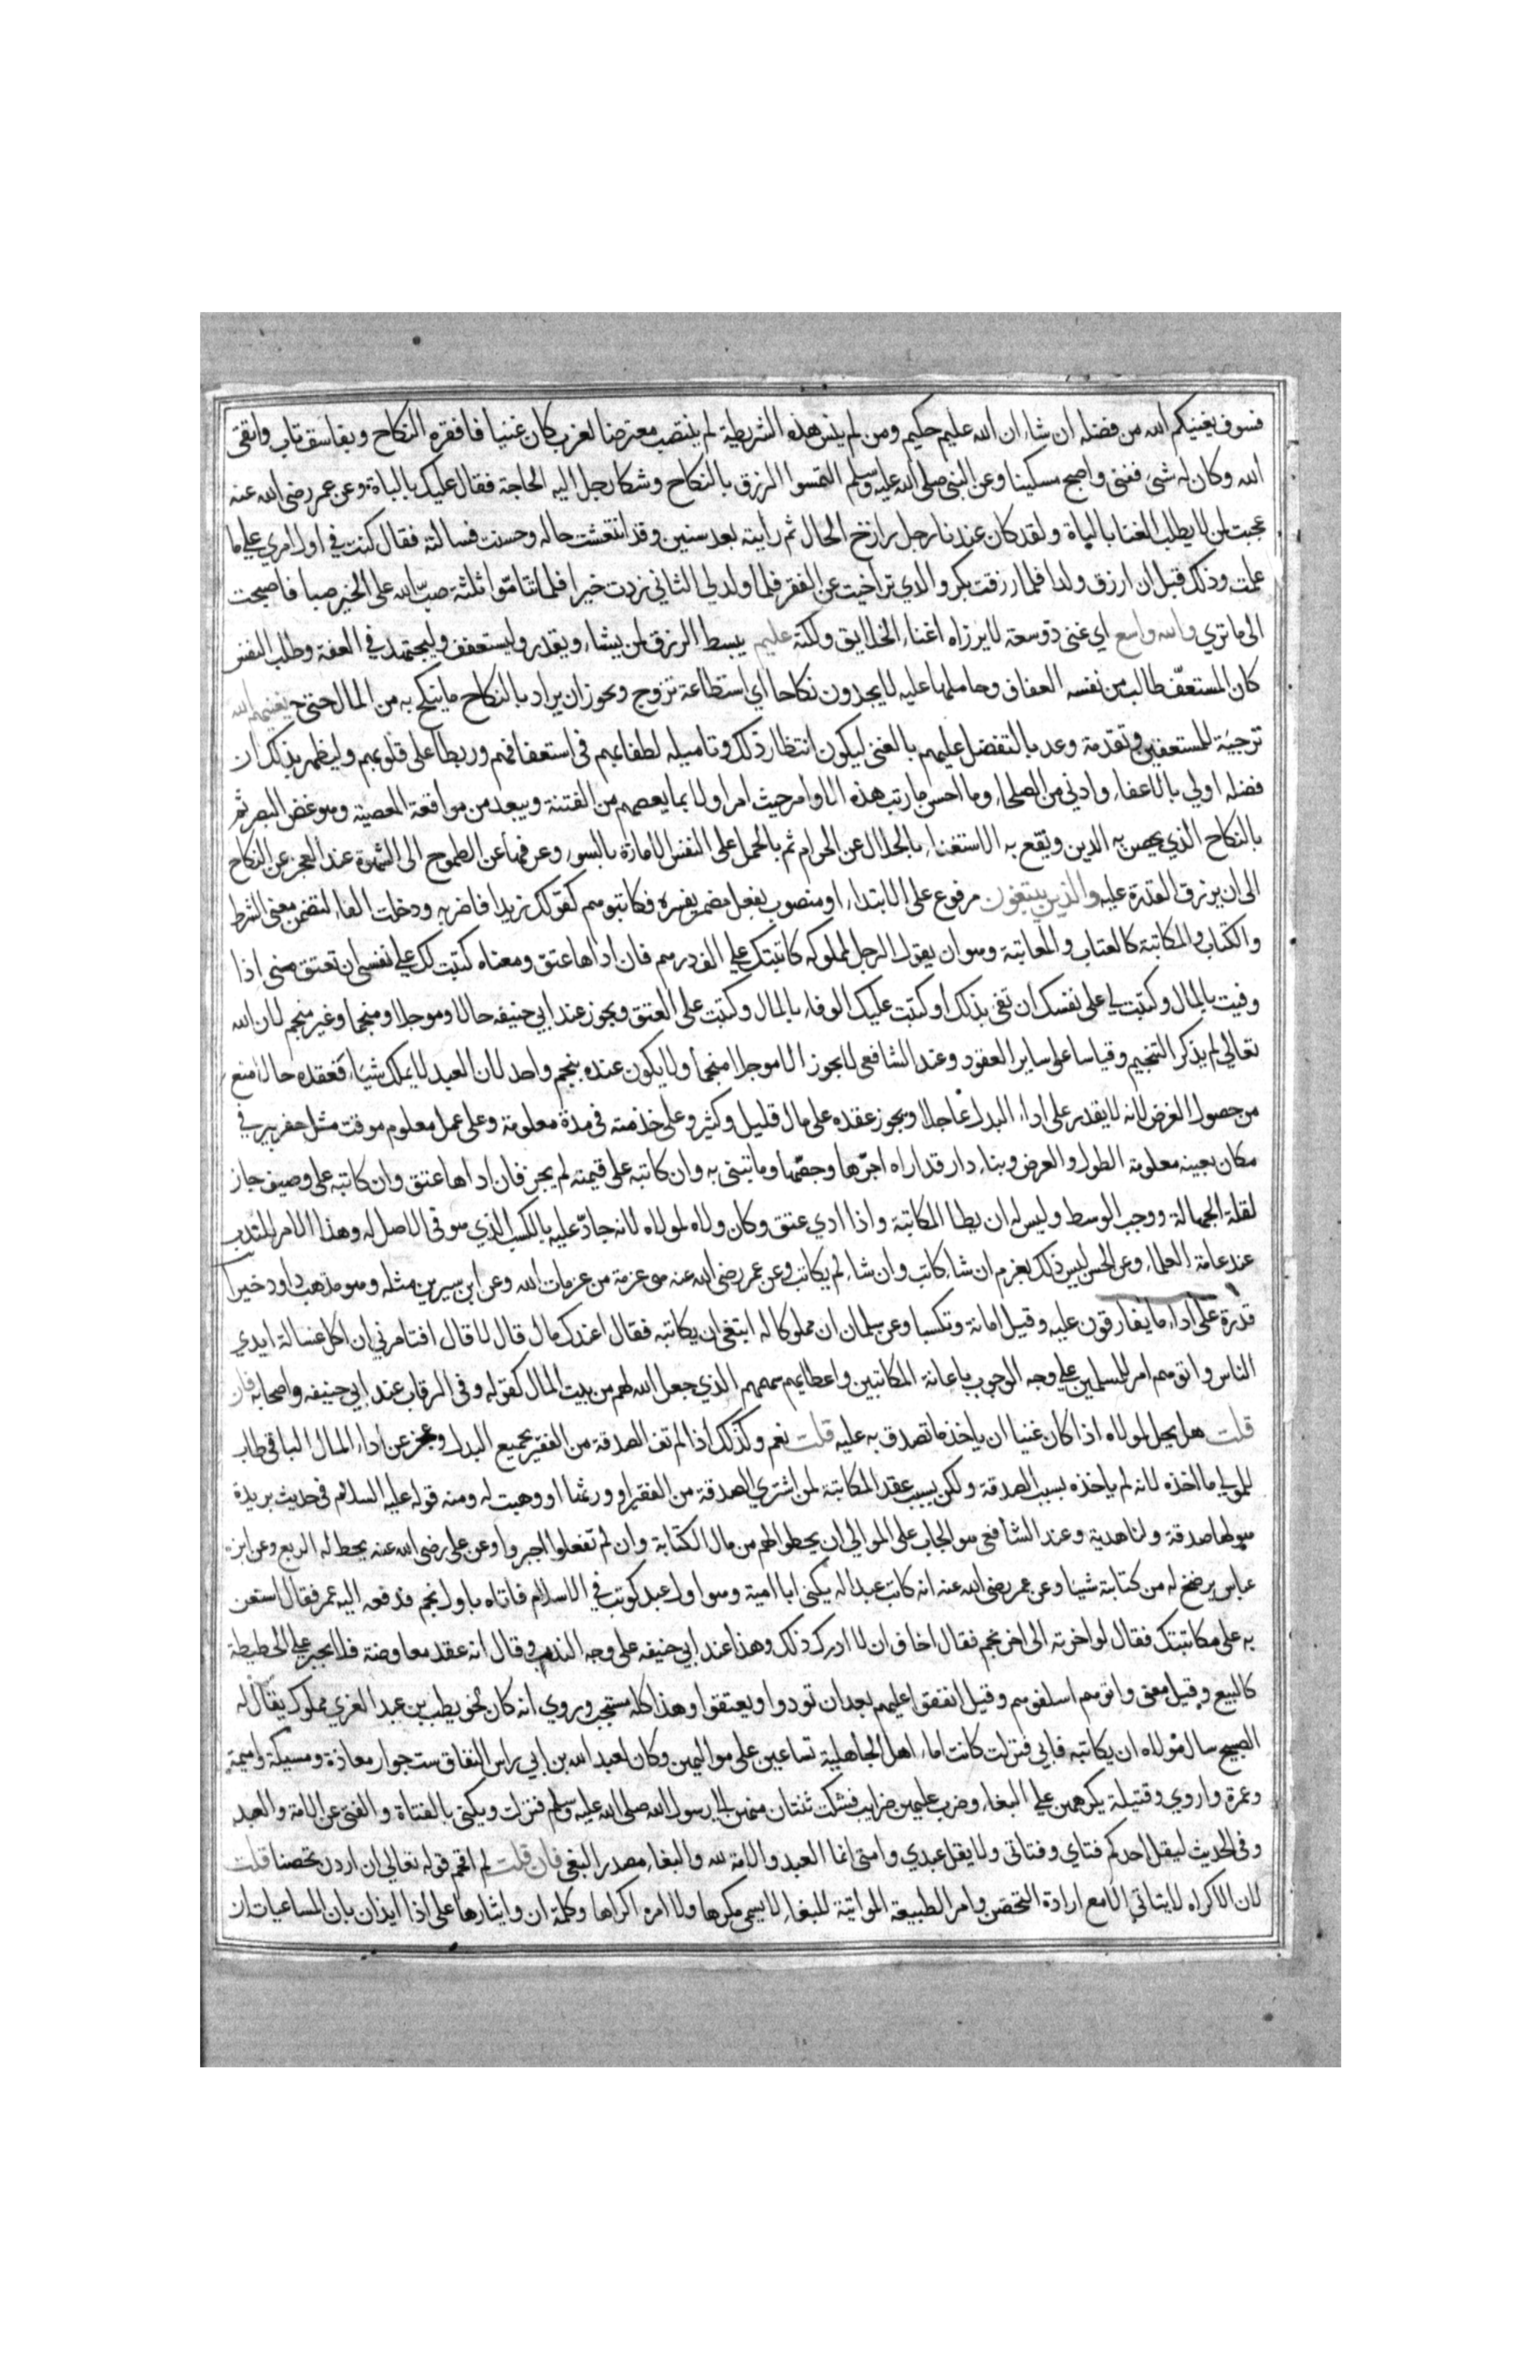 فسوف يغنيكم الله من فضله ان شاء ان الله عليم حكيم ومن لم ينس هذه الشريطة لم ينتصب معترضا لعزب كان غنيا فافقره النكاح وبفاسق تاب واتقى
الله وكان له شى ففنى واصبح مسكينا وعن النبى صلى الله عليه وسلم التمسوا الرزق بالنكاح وشكا رجل اليه الحاجة فقال عليك بالباة وعن عمر رضى الله عنه
عجبت لمن لا يطلب الغنا بالباة ولقد كان عندنا رجل رازخ الحال ثم رايته بعد سنين وقد انتعشت حاله وحسنت فسالته فقال كنت في اول امري علي ما
علمت وذلك قبل ان ارزق ولدا فلما رزقت بكر والدي تراخيت عن الفقر فلما ولد لي الثاني زدت خيرا فلما تتاموا ثلثة صب الله على الخير صبا فاصبحت
الى ما تري والله واسع اي غنى ذو سعة لا يرزاه اغناء الخلايق ولكنه عليم يبسط الرزق لمن يشاء ويقدر وليستعفف وليجتهد في العفة وظلف النفس
كان المستعف طالب من نفسه العفاف وحاملها عليه لا يجدون نكاحا اي استطاعة تزوج ويجوز ان يراد بالنكاح ما ينكح به من المال حتى يغنيهم الله
ترجية للمستعففين وتقدمة وعد بالتفضل عليهم بالغنى ليكون انتظار ذلك وتاميله لطفا بهم فى استعفافهم وربطا على قلوبهم وليظهر بذلك ان
فضله اولي بالاعفاء وادني من الصلحاء وما احسن ما رتب هذه الاوامر حيث امر اولا بما يعصم من الفتنة ويبعد من مواقعة المعصية وهو غض البصر ثم
بالنكاح الذي يحصن به الدين ويقع به الاستغناء بالحلال عن الحرام ثم بالحمل على النفس الامارة بالسوء وعزفها عن الطموح الى الشهوة عند العجز عن النكاح
الى ان يرزق القدرة عليه والذين يبتغون مرفوع على الابتداء او منصوب بفعل مضمر يفسره فكاتبوهم كقولك زيدا فاضربه ودخلت الفاء لتضمن معنى الشرط
والكتاب والمكاتبة كالعتاب والمعاتبة وهو ان يقول الرجل لمملوكه كاتبتك على الف درهم فان اداها عتق ومعناه كتبت لك علي نفسى ان تعتق منى اذا
وفيت بالمال وكتبت لي على نفسك ان تفى بذلك او كتبت عليك الوفاء بالمال وكتبت على العتق ويجوز عند ابي حنيفه حالا وموجلا ومنجما وغير منجم لان الله
تعالي لم يذكر التنجيم وقياسا على ساير العقود وعند الشافعى لا يجوز الا موجلا منجما ولا يكون عنده بنجم واحد لان العبد لا يملك شيا فعقده حالا منع
من حصول الغرض لانه لا يقدر على اداء البدل عاجلا ويجوز عقده على مال قليل وكثير وعلى خدمته فى مدة معلومة وعلى عمل معلوم موقت مثل حفر بير في
مكان بعينه معلومة الطول والعرض وبناء دار قد اراه اجرها وجصها وما تبنى به وان كاتبه على قيمته لم يجز فان اداها عتق وان كاتبه على وصيف جاز
لقلة الجهالة ووجب الوسط وليس له ان يطا المكاتبة واذا ادي عتق وكان ولاه لمولاه لانه جاد عليه بالكسب الذي هو في الاصل له وهذا الامر للندب
عند عامة العلماء وعن الحسن ليس ذلك بعزم ان شاء كاتب وان شاء لم يكاتب وعن عمر رضى الله عنه هى عزمة من عزمات الله وعن ابن سيرين مثله وهو مذهب داود خيرا
قدرة على اداء ما يفارقون عليه وقيل امانة وتكسبا وعن سلمان ان مملوكا له ابتغى ان يكاتبه فقال اعندك مال قال لا قال افتامرني ان اكل غسالة ايدي
الناس واتوهم امر للمسلمين علي وجه الوجوب باعانة المكاتبين واعطايهم سهمهم الذي جعل الله لهم من بيت المال كقوله وفى الرقاب عند ابي حنيفه واصحابه فان
قلت هل يحل لمولاه اذا كان غنيا ان ياخذ ما تصدق به عليه قلت نعم وكذلك اذا لم تف الصدقة من الفقير بجميع البدل وعجز عن اداء المال الباقى طاب
للمولي ما اخذه لانه لم ياخذه بسبب الصدقة ولكن بسبب عقد المكاتبة لمن اشتري الصدقة من الفقير او ورثها او وهبت له ومنه قوله عليه السلام فى حديث بريدة
هو لها صدقة ولنا هدية وعند الشافعى هو ايجاب على الموالي ان يحطوا لهم من مال الكتابة وان لم تفعلوا اجبروا وعن على رضى الله عنه يحط له الربع وعن ابن
عباس يرضخ له من كتابة شيئا وعن عمر رضى الله عنه انه كاتب عبدا له يكنى ابا امية وهو اول عبد كوتب في الاسلام فاتاه باول نجم فدفعه اليه عمر فقال استعن
به على مكاتبتك فقال لو اخرته الى اخر نجم فقال اخاف ان لا ادرك ذلك وهذا عند ابي حنيفه على وجه الندب وقال انه عقد معاوضة فلا يجبر علي الحطيطة
كالبيع وقيل معنى واتوهم اسلفوهم وقيل انفقوا عليهم بعد ان تودوا ويعتقوا وهذا كله مستحب وروي انه كان لحويطب بن عبد العزي مملوك يقال له
الصبيح سال مولاه ان يكاتبه فابي فنزلت كانت اماء اهل الجاهلية تساعين على مواليهن وكان لعبد الله بن ابي راس النفاق ست جوار معاذة ومسيكة واميمة
وعمرة واروي وقتيلة يكرههن علي البغاء وضرب عليهن ضرايب فشكت ثنتان منهن الى رسول الله صلى الله عليه وسلم فنزلت ويكنى بالفتاة والفتى عن الامة والعبد
وفى الحديث ليقل احدكم فتاي وفتاتى ولا يقل عبدي وامتى انما العبد والامة لله والبغاء مصدر البغى فان قلت لم اقحم قوله تعالي ان اردن تحصنا قلت
لان الاكراه لا يتاتي الا مع ارادة التحصن وامر الطبيعة المواتية للبغاء لا يسمى مكرها ولا امره اكراها وكلمة ان وايثارها على اذا ايذان بان المساعيات كن